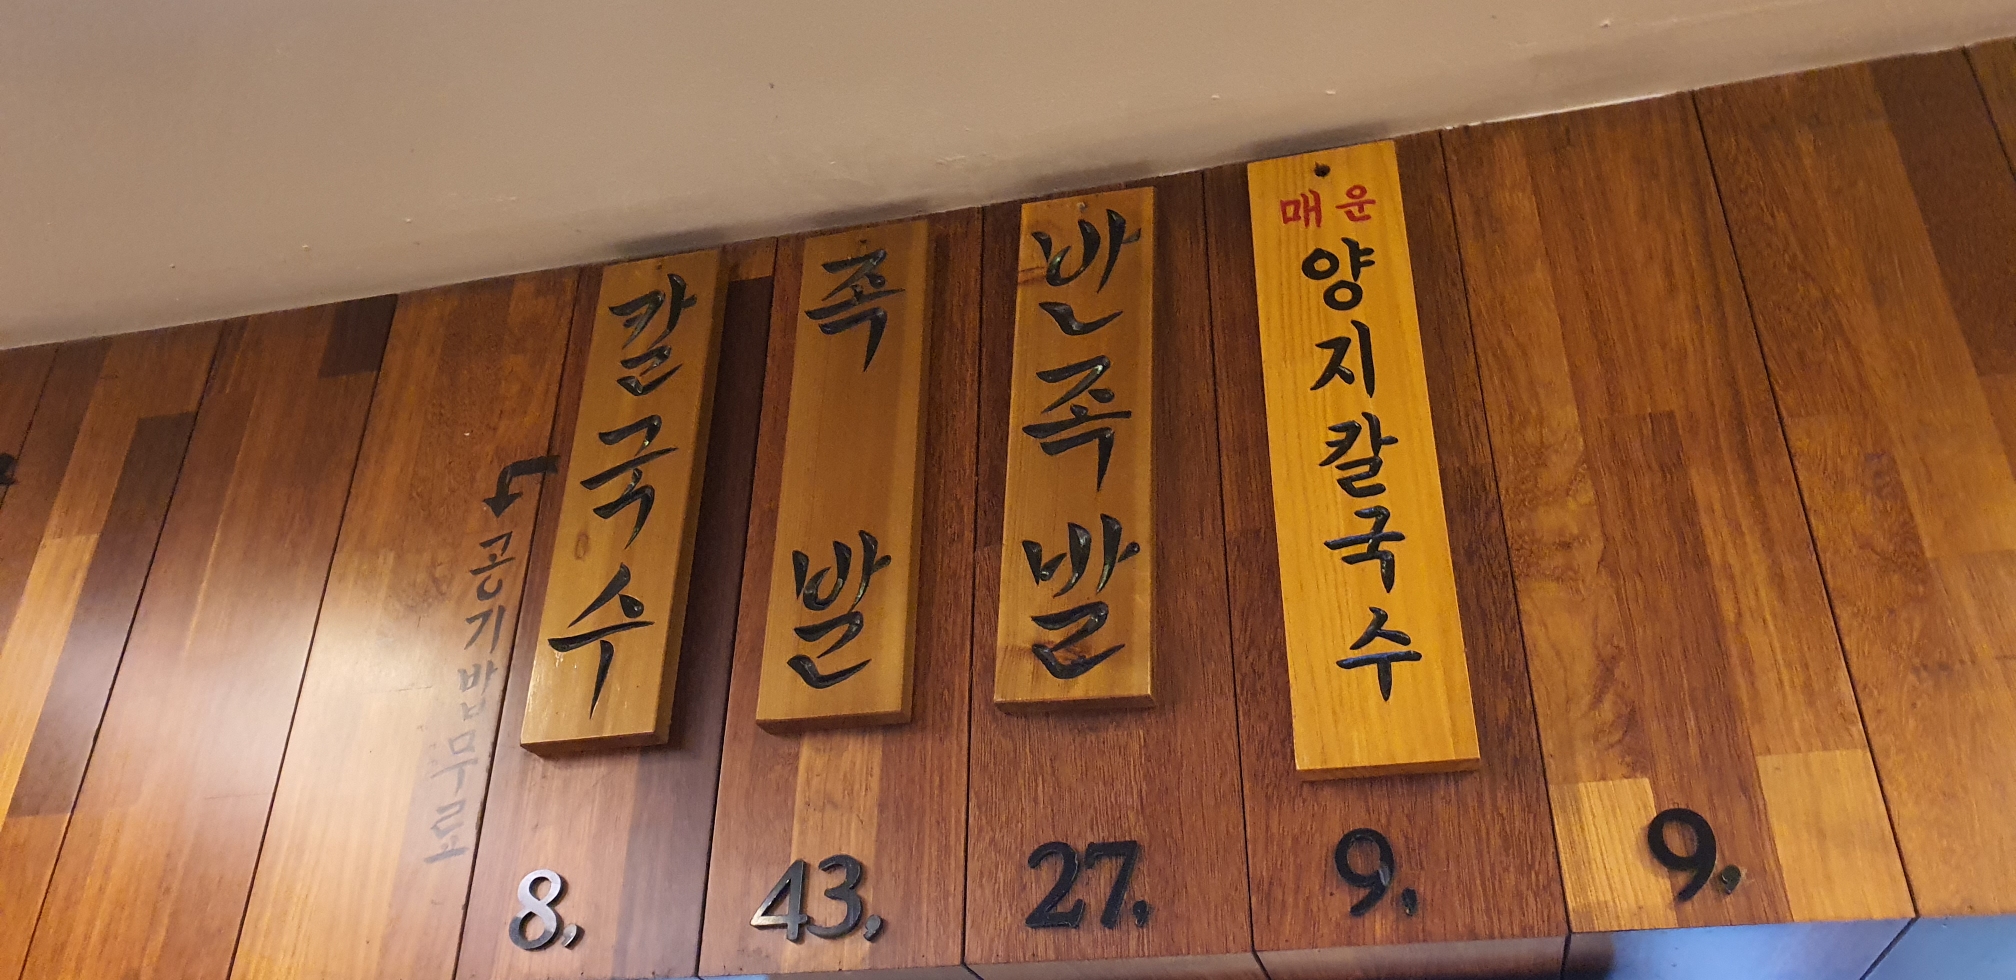 칼국수
8,
공기밥무료
족발
43,
반족발
27,
매운
양지칼국수
9,
9,